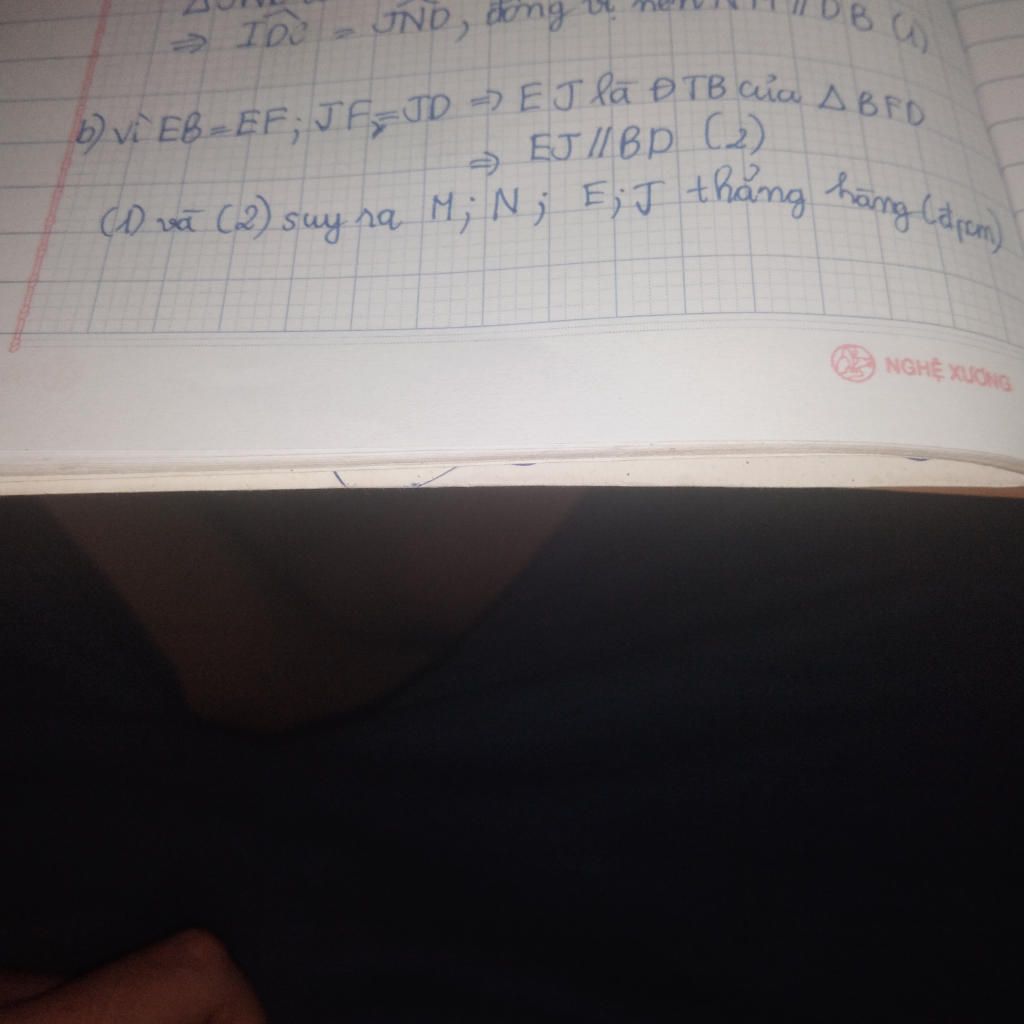 ⇒ IDC = JND, đồng vị nên NM // DB (1)
b) vì EB = EF; JF = JD ⇒ EJ là ĐTB của Δ BFD
⇒ EJ // BD (2)
(1) và (2) suy ra M; N; E; J thẳng hàng (đpcm)
NGHỆ XƯƠNG